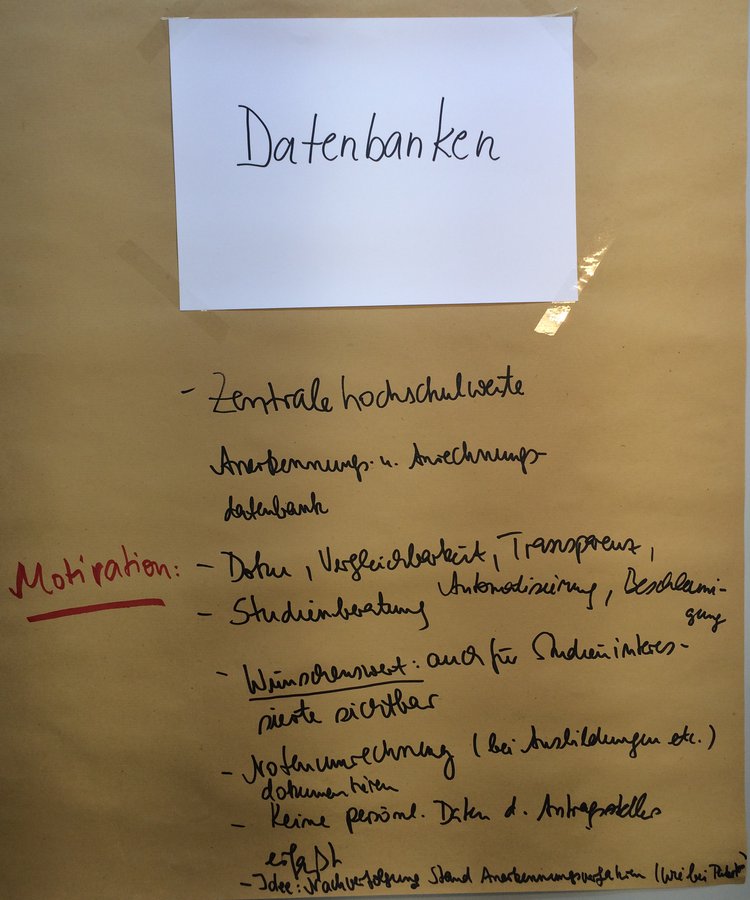 Datenbanken
- Zentrale hochschulweite
Anerkennungs- u. Anrechnungs-
datenbank
Motivation: - Doku, Vergleichbarkeit, Transparenz,
Automatisierung, Beschleuni-
gung
- Studienberatung
- Wünschenswert: auch für Studieninteres-
sierte sichtbar
- Notenumrechnung (bei Ausbildungen etc.)
dokumentieren
- Keine persönl. Daten d. Antragstellers
erfaßt
- Idee: Nachverfolgung Stand Anerkennungsverfahren (wie bei